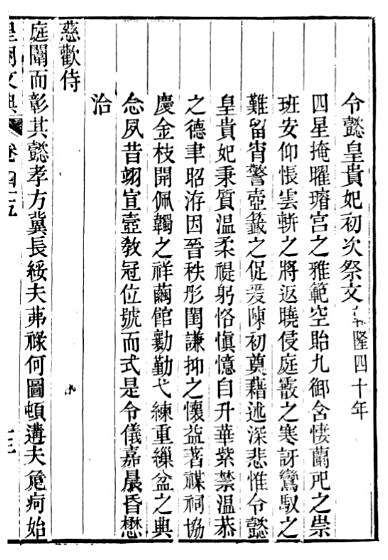 令懿皇貴妃初次祭文 乾隆四十年
四星掩曜璿宮之雅範空貽九御含悽蘭戺之崇
班安仰悵雲軿之將返曉侵庭霰之寒訝鸞馭之
難留宵警壺籤之促爰陳初奠藉述深悲惟令懿
皇貴妃秉質溫柔禔躬恪慎憶自升華紫禁溫恭
之德聿昭洊因晉秩彤闈謙抑之懷益著禖祠協
慶金枝開佩韣之祥繭館勷勤弋練重繅盆之典
念夙昔翊宣壼敎冠位號而式是令儀嘉晨昏懋
治
慈歡侍
庭闈而彰其懿孝方冀長綏夫茀祿何圖頓遘夫危疴始
皇朝文典 卷四十五